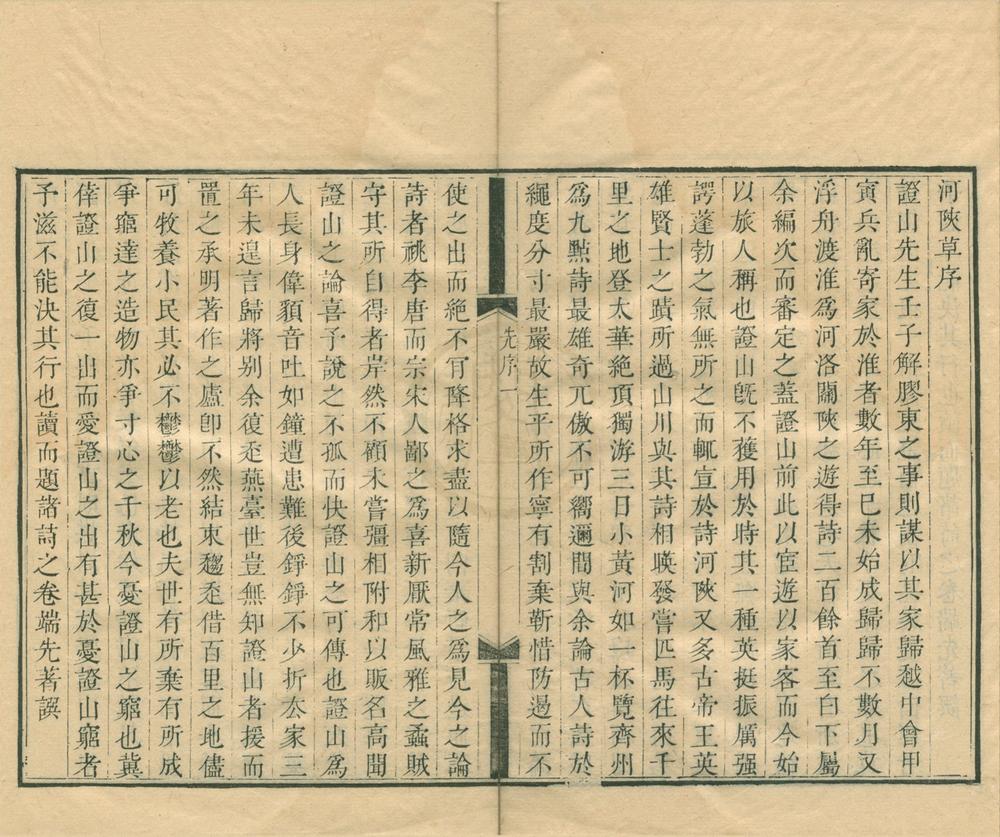 河陝草序
證山先生壬子解膠東之事則謀以其家歸越中會甲
寅兵亂寄家於淮者數年至己未始成歸歸不數月又
浮舟渡淮爲河洛關陝之遊得詩二百餘首至白下屬
余編次而審定之蓋證山前此以宦遊以家客而今始
以旅人稱也證山旣不獲用於時其一種英挺振厲强
諤蓬勃之氣無所之而輒宣於詩河陝又多古帝王英
雄賢士之蹟所過山川與其詩相暎發嘗匹馬往來千
里之地登太華絕頂獨游三日小黃河如一杯覽齊州
爲九點詩最雄奇兀傲不可嚮邇間與余論古人詩於
繩度分寸最嚴故生平所作寧有割棄靳惜防過而不
先序一
使之出而絕不肎降格求盡以隨今人之爲見今之論
詩者祧李唐而宗宋人鄙之爲喜新厭常風雅之蟊賊
守其所自得者岸然不顧未嘗彊相附和以販名高聞
證山之論喜予說之不孤而快證山之可傳也證山爲
人長身偉貌音吐如鐘遭患難後錚錚不少折厺家三
年未遑言歸將别余復厺燕臺世豈無知證山者援而
置之承明著作之廬卽不然結束趨厺借百里之地儘
可牧養小民其必不鬱鬱以老也夫世有所棄有所成
爭窮達之造物亦爭寸心之千秋今憂證山之窮也冀
倖證山之復一出而愛證山之出有甚於憂證山窮者
予滋不能決其行也讀而題諸詩之卷端先著譔